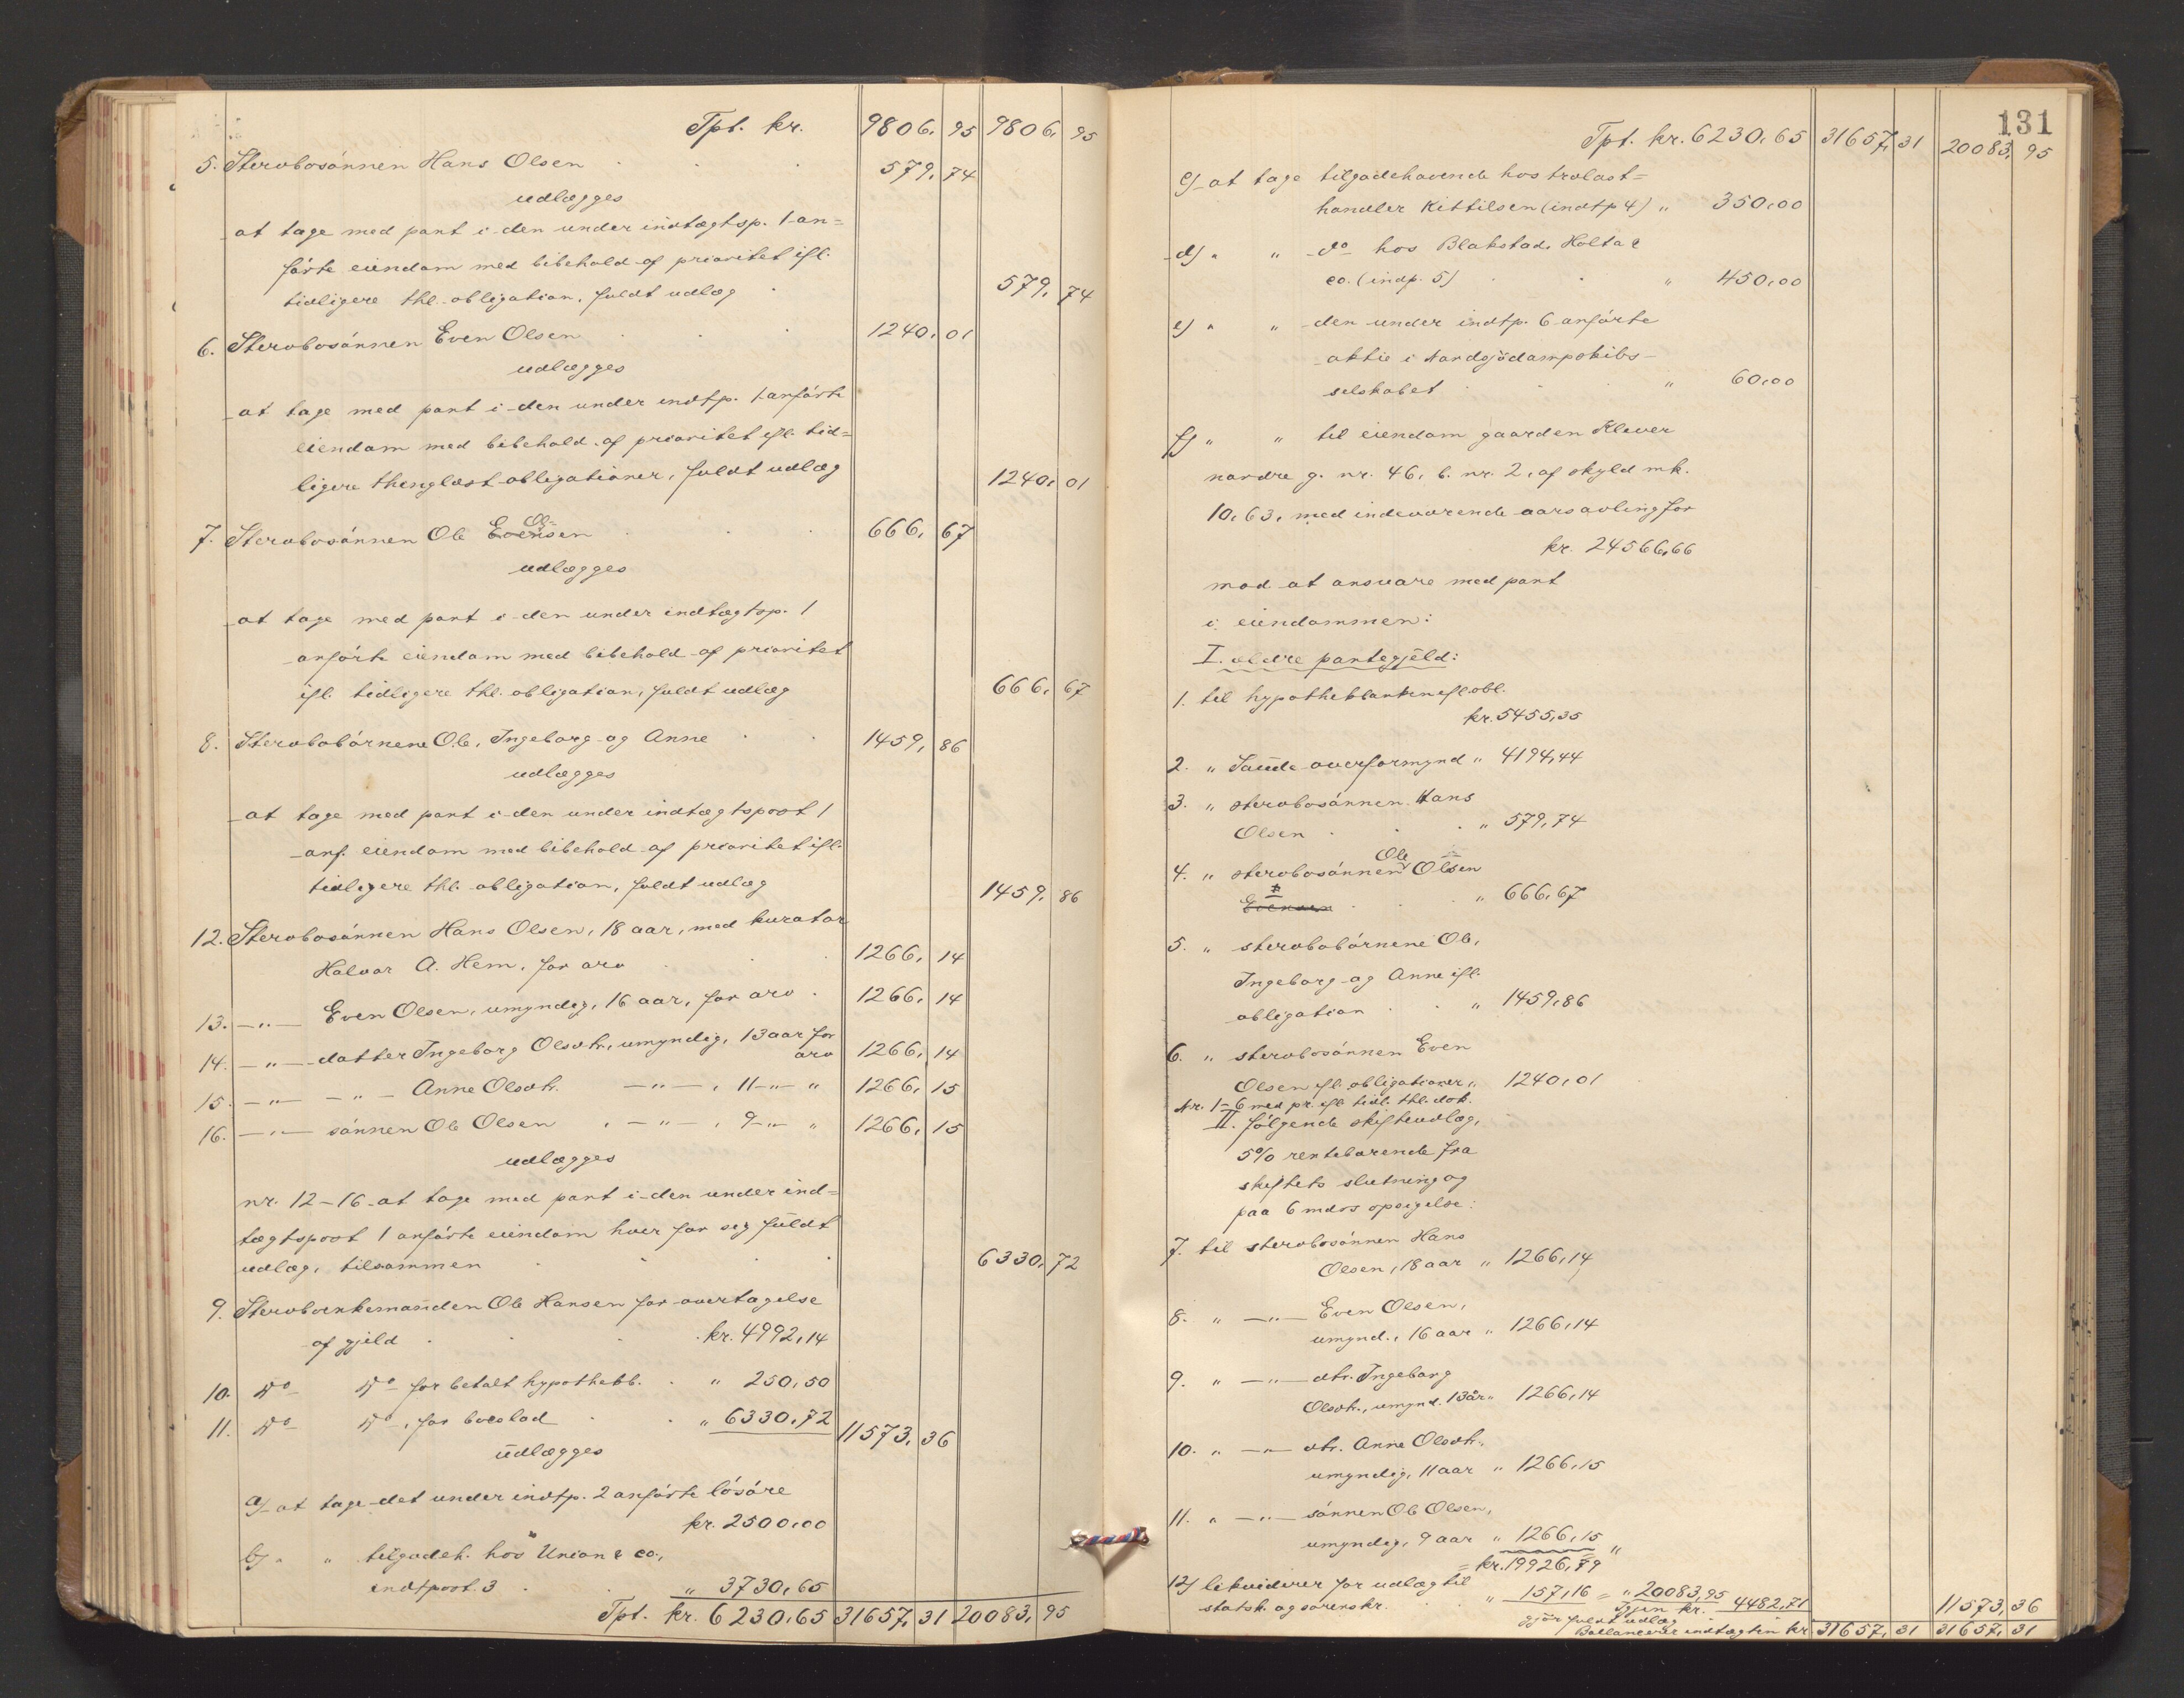 Tpt. kr. 9806,95 9806,95
5. Stervbosönnen Hans Olsen 579,74
udlægges
at tage med pant i den under indtægtsp. 1 an=
förte eiendom med bibehold af prioritet ifl.
tidligere thl. obligation, fuldt udlæg 579,74
6. Stervbosönnen Even Olsen 1240,01
udlægges
at tage med pant i den under indtp. 1 anförte
eiendom med bibehold af prioritet ifl. tid=
ligere thinglæst obligationer, fuldt udlæg 1240,01
7. Stervbosönnen Ole Evensen 666,67
udlægges
at tage med pant i den under indtægtsp. 1
anförte eiendom med bibehold af prioritet
ifl. tidligere thl. obligation, fuldt udlæg 666,67
8. Stervbobörnene Ole, Ingeborg og Anne 1459,86
udlægges
at tage med pant i den under indtægtspost 1
anf. eiendom med bibehold af prioritet ifl.
tidligere thl. obligation, fuldt udlæg 1459,86
12. Stervbosönnen Hans Olsen, 18 aar, med kurator
Halvor A. Hem, for arv 1266,14
13. —"— Even Olsen, umyndig, 16 aar, for arv 1266,14
14. —"— datter Ingeborg Olsdtr., umyndig, 13 aar for
arv 1266,14
15. —"— —"— Anne Olsdtr. —"—, 11 —"— " 1266,15
16. —"— sönnen Ole Olsen, —"—, 9 —"— " 1266,15
udlægges
nr. 12–16 at tage med pant i den under ind=
tægtspost 1 anförte eiendom hver for sig fuldt
udlæg, tilsammen 6330,72
9. Stervboenkemanden Ole Hansen for overtagelse
af gjeld kr. 4992,14
10. Do Do for betalt hypothekb. " 250,50
11. Do Do, for boeslod " 6330,72 11573,36
udlægges
a) at tage det under indtp. 2 anförte lösöre
kr. 2500,00
b) " " tilgodeh. hos Union & co.,
indtpost. 3 " 3730,65
Tpt. kr. 6230,65 31657,31 20083,95
131
Tpt. kr. 6230,65 31657,31 20083,95
c) at tage tilgodehavende hos trælast=
handler Kittilsen (indtp 4) " 350,00
d) " " do hos Blakstad, Holta &
co. (indp. 5) " 450,00
e) " " den under indtp. 6 anförte
aktie i Nordsjödampskibs-
selskabet " 60,00
f) " " til eiendom gaarden Klever
nordre g. nr. 46, b. nr. 2, af skyld mk.
10,63, med indeværende aars avling for
kr. 24566,66
mod at ansvare med pant
i eiendommen:
I. ældre pantegjeld:
1. til hypothekbanken ifl. obl.
kr. 5455,35
2. " Saude overformynd " 4194,44
3. " stervbosönnen Hans
Olsen " 579,74
Ole
4. " stervbosönnen Olsen
Evensen " 666,67
5. " stervbobörnene Ole,
Ingeborg og Anne ifl.
obligation " 1459,86
6. " stervbosönnen Even
Olsen ifl. obligationer " 1240,01
Nr. 1–6 med pr. ifl. tidl. thl. dok.
II. fölgende skifteudlæg,
5% rentebærende fra
skiftets slutning og
paa 6 mdrs opsigelse:
7. til stervbosönnen Hans
Olsen, 18 aar " 1266,14
8. " —"— Even Olsen,
umynd., 16 aar " 1266,14
9. " —"— dtr. Ingeborg
Olsdtr., umynd. 13 år " 1266,14
10. " —"— dtr. Anne Olsdtr.,
umyndig, 11 aar " 1266,15
11. " —"— sönnen Ole Olsen,
umyndig, 9 aar " 1266,15
= kr. 19926,79
12) likviderer for udlæg til
statsk. og sorenskr. " 157,16 = " 20083,95
Igjen kr. 4482,71 11573,36
gjör fuldt udlæg
Ballancerer indtægten kr 31657,31 31657,31